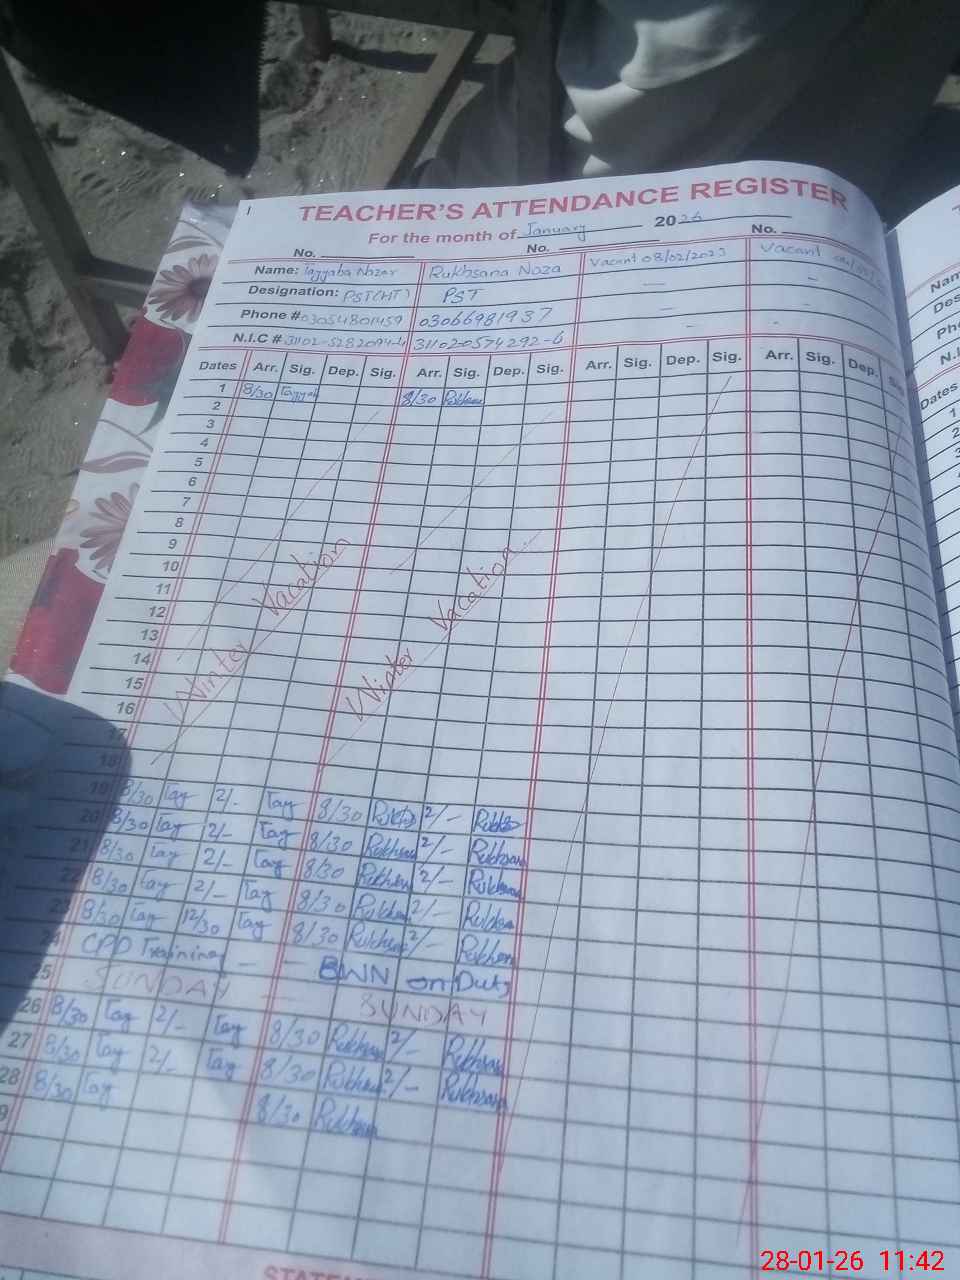 1
TEACHER'S ATTENDANCE REGISTER
For the month of January 2026
No. No. No.
Name: Tayyaba Nazar Rukhsana Noza Vacant 08/02/2023 Vacant
Designation: PST(HT) PST — –
Phone # 03054801459 03066981937 – –
N.I.C # 31102-5282094-4 31102-0574292-6 - -
Dates Arr. Sig. Dep. Sig. Arr. Sig. Dep. Sig. Arr. Sig. Dep. Sig. Arr. Sig. Dep. Sig
1 8/30 Tayyab 8/30 Rukhsana
2
3
4
5
6
7
8
9
10
11
12
13
14
15
16
17
18
Winter Vacation Winter Vacation
19 8/30 Tay 2/- Tay 8/30 Rukhs 2/- Rukhs
20 8/30 Tay 2/- Tay 8/30 Rukhsana 2/- Rukhsana
21 8/30 Tay 2/- Tay 8/30 Rukhsana 2/- Rukhsana
22 8/30 Tay 2/- Tay 8/30 Rukhsana 2/- Rukhsana
23 8/30 Tay 12/30 Tay 8/30 Rukhsana 2/- Rukhsana
24 CPD Training — — BWN on Duty
25 SUNDAY — SUNDAY
26 8/30 Tay 2/- Tay 8/30 Rukhsana 2/- Rukhsana
27 8/30 Tay 2/- Tay 8/30 Rukhsana 2/- Rukhsana
28 8/30 Tay 8/30 Rukhsana
9
STATEM
Nam
Des
Pho
N.I.
Dates
1
2
3
28-01-26 11:42